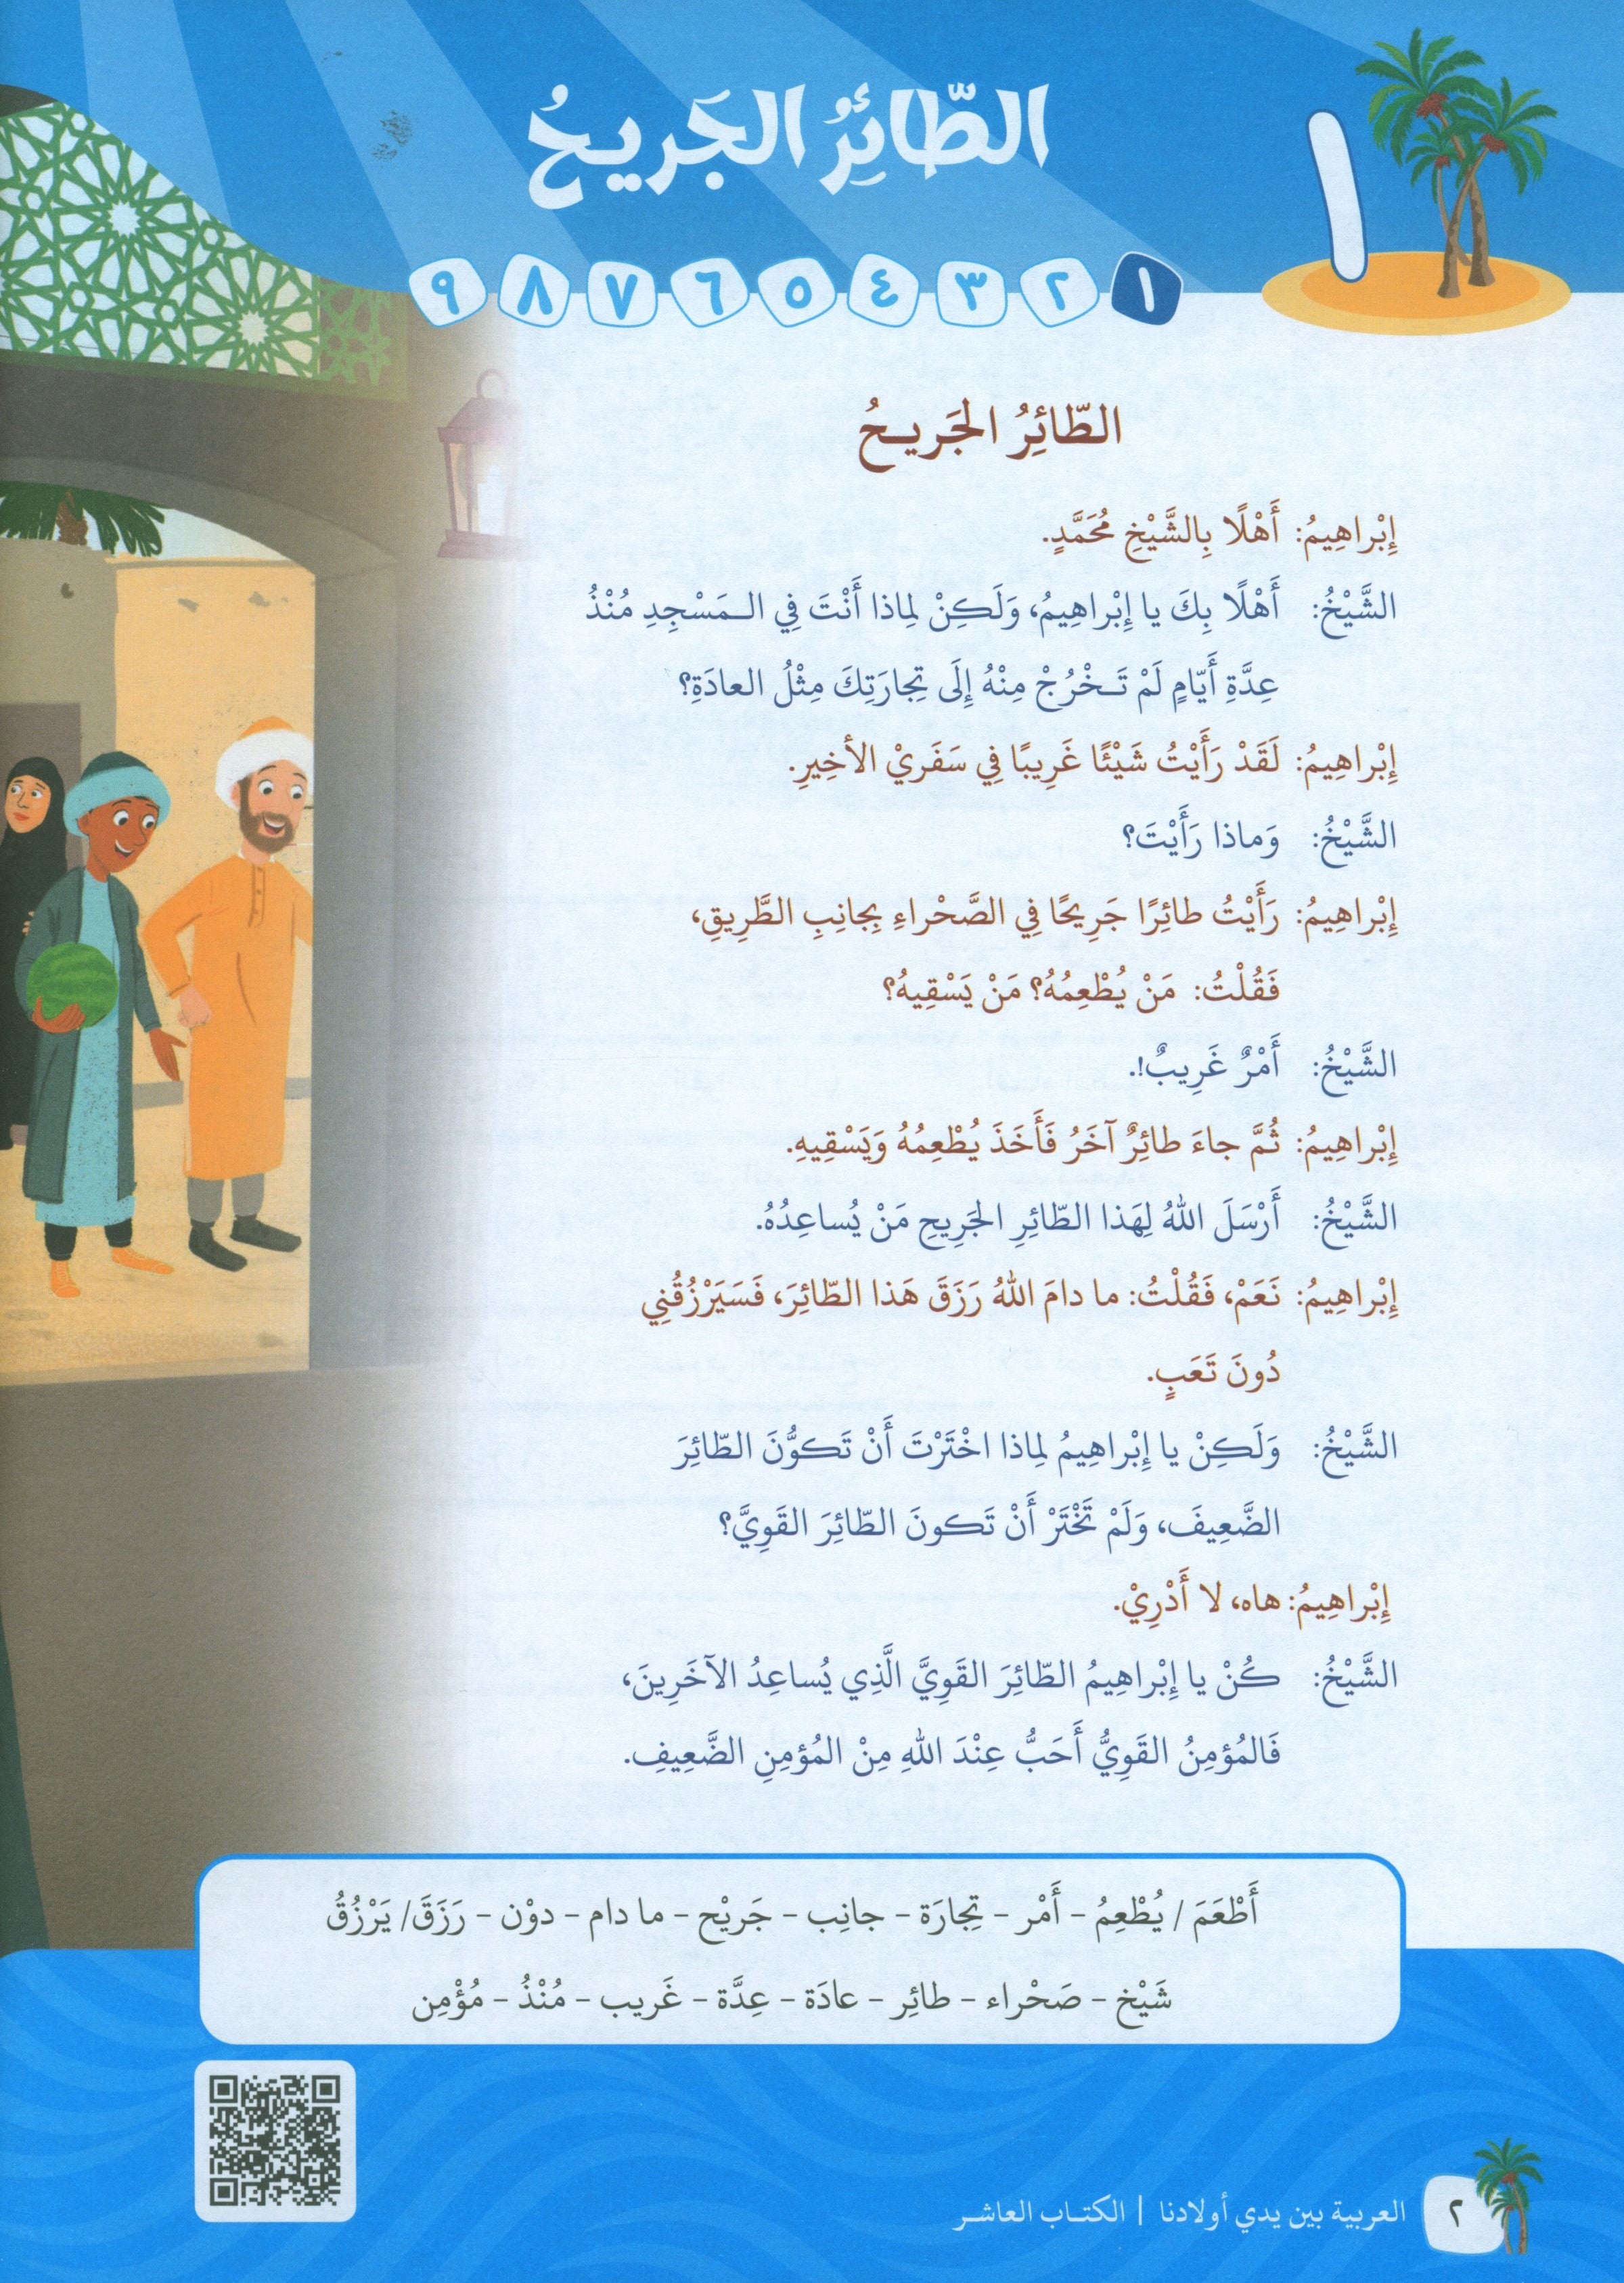 الطّائِرُ الجَريحُ
١
١ ٢ ٣ ٤ ٥ ٦ ٧ ٨ ٩
الطّائِرُ الجَريـحُ
إِبْراهِيمُ: أَهْلًا بِالشَّيْخِ مُحَمَّدٍ.
الشَّيْخُ: أَهْلًا بِكَ يا إِبْراهِيمُ، وَلَكِنْ لِماذا أَنْتَ فِي الـمَسْجِدِ مُنْذُ
عِدَّةِ أَيّامٍ لَمْ تَـخْرُجْ مِنْهُ إِلَى تِجارَتِكَ مِثْلُ العادَةِ؟
إِبْراهِيمُ: لَقَدْ رَأَيْتُ شَيْئًا غَرِيبًا فِي سَفَرَيْ الأخِيرِ.
الشَّيْخُ: وَماذا رَأَيْتَ؟
إِبْراهِيمُ: رَأَيْتُ طائِرًا جَرِيحًا فِي الصَّحْراءِ بِجانِبِ الطَّرِيقِ،
فَقُلْتُ: مَنْ يُطْعِمُهُ؟ مَنْ يَسْقِيهُ؟
الشَّيْخُ: أَمْرٌ غَرِيبٌ!.
إِبْراهِيمُ: ثُمَّ جاءَ طائِرٌ آخَرُ فَأَخَذَ يُطْعِمُهُ وَيَسْقِيهِ.
الشَّيْخُ: أَرْسَلَ اللهُ لِهَذا الطّائِرِ الجَرِيحِ مَنْ يُساعِدُهُ.
إِبْراهِيمُ: نَعَمْ، فَقُلْتُ: ما دامَ اللهُ رَزَقَ هَذا الطّائِرَ، فَسَيَرْزُقُنِي
دُونَ تَعَبٍ.
الشَّيْخُ: وَلَكِنْ يا إِبْراهِيمُ لِماذا اخْتَرْتَ أَنْ تَكوُّنَ الطّائِرَ
الضَّعِيفَ، وَلَمْ تَخْتَرْ أَنْ تَكونَ الطّائِرَ القَوِيَّ؟
إِبْراهِيمُ: هاه، لا أَدْرِيْ.
الشَّيْخُ: كُنْ يا إِبْراهِيمُ الطّائِرَ القَوِيَّ الَّذِي يُساعِدُ الآخَرِينَ،
فَالمُؤمِنُ القَوِيُّ أَحَبُّ عِنْدَ اللهِ مِنْ المُؤمِنِ الضَّعِيفِ.
أَطْعَمَ / يُطْعِمُ – أَمْر – تِجارَة – جانِب – جَريْح – ما دام – دوْن – رَزَقَ/ يَرْزُقُ
شَيْخ – صَحْراء – طائِر – عادَة – عِدَّة – غَريب – مُنْذُ – مُؤْمِن
٢ العربية بين يدي أولادنا | الكتـاب العاشـر